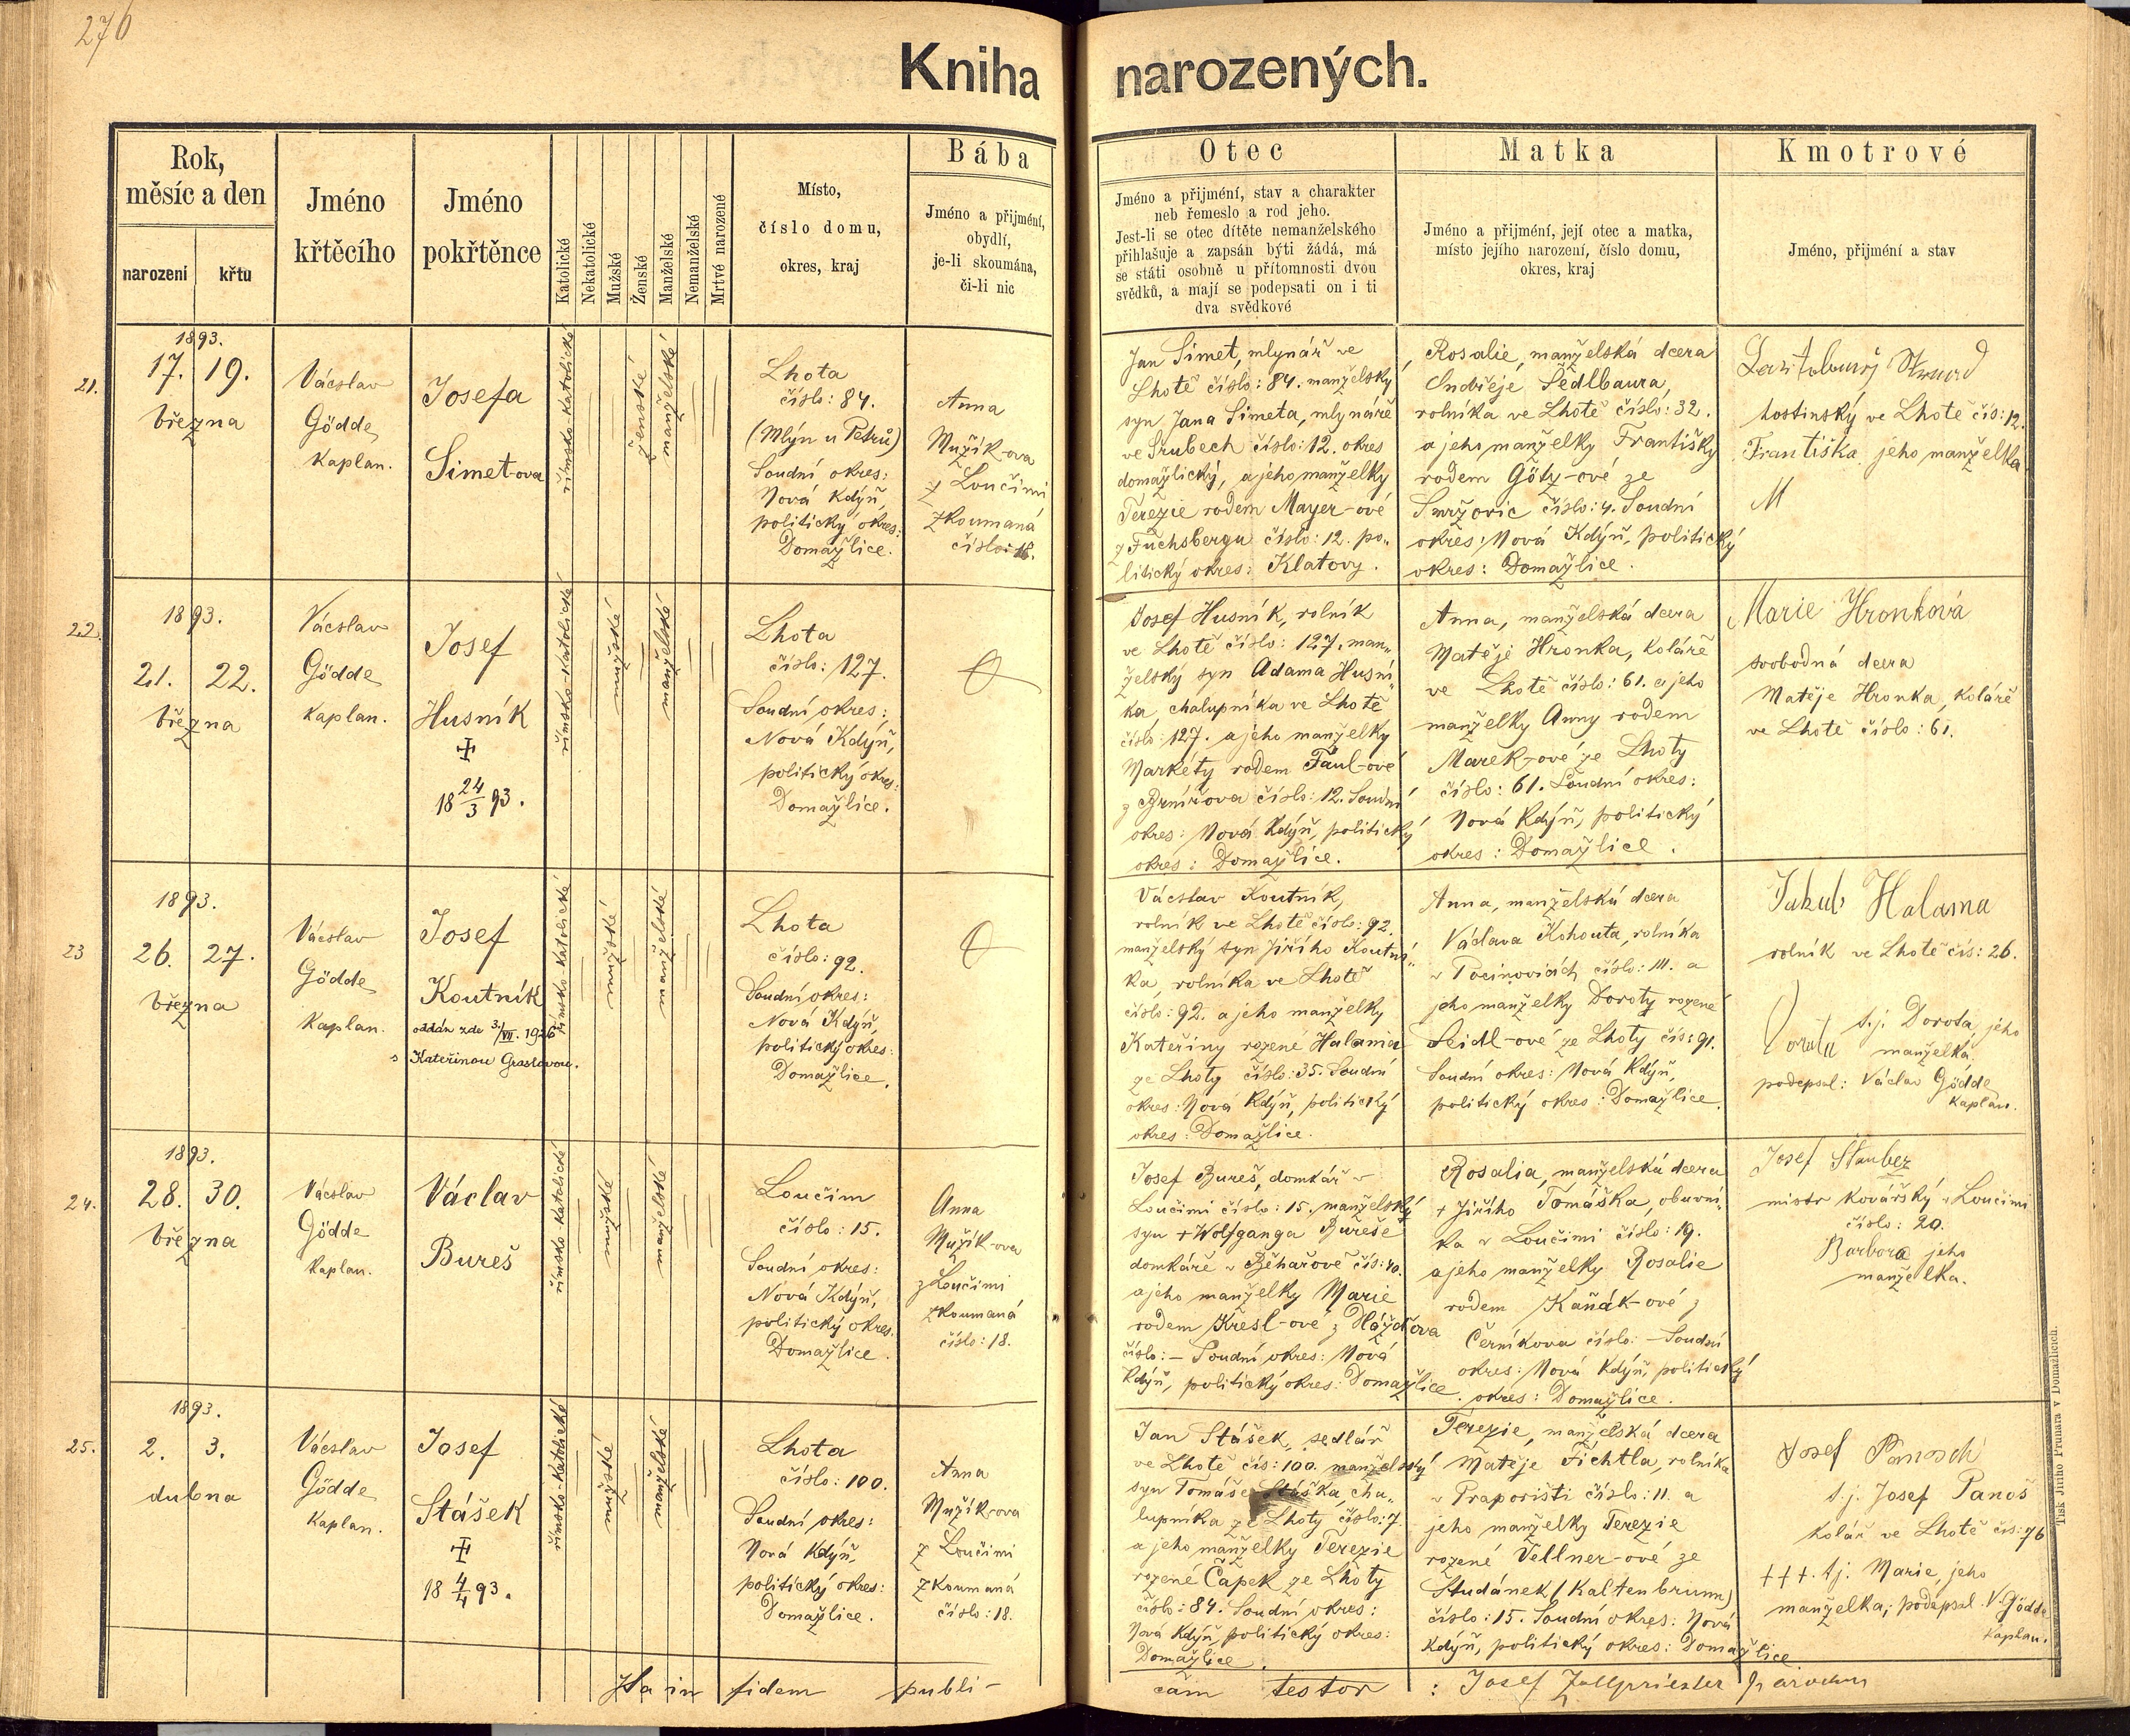 276
Kniha narozených.
Rok,
měsíc a den
narození
křtu
Jméno
křtěcího
Jméno
pokřtěnce
Katolické
Nekatolické
Mužské
Ženské
Manželské
Nemanželské
Mrtvé narozené
Místo,
číslo domu,
okres, kraj
Bába
Jméno a přijmění,
obydlí,
je-li skoumána,
či-li nic
Otec
Jméno a přijmění, stav a charakter
neb řemeslo a rod jeho.
Jest-li se otec dítěte nemanželského
přihlašuje a zapsán býti žádá, má
se státi osobně u přítomnosti dvou
svědků, a mají se podepsati on i ti
dva svědkové
Matka
Jméno a přijmění, její otec a matka,
místo jejího narození, číslo domu,
okres, kraj
Kmotrové
Jméno, přijmění a stav
21.
1893.
17. 19.
března
Vácslav
Gödde
Kaplan.
Josefa
Simet-ova
římsko-katolické
ženské
manželské
Lhota
číslo: 84.
(Mlýn u Petrů)
Soudní okres:
Nová Kdýň,
politický okres:
Domažlice.
Anna
Mužík-ova
z Loučimi
zkoumaná
číslo: 18.
Jan Simet, mlynář ve
Lhotě číslo: 84. manželský
syn Jana Simeta, mlynáře
ve Srubech číslo: 12. okres
domažlický, a jeho manželky
Terezie rodem Mayer-ové
z Fuchsbergu číslo: 12. po„
litický okres: Klatovy.
Rosalie, manželská dcera
Ondřeje Sedlbaura,
rolníka ve Lhotě číslo: 32.
a jeho manželky Františky
rodem Göty-ové ze
Smržovic číslo: 4. Soudní
okres: Nová Kdýň, politický
okres: Domažlice.
hostinský ve Lhotě čís: 12.
Františka jeho manželka
22.
1893.
21. 22.
března
Vácslav
Gödde
Kaplan.
Josef
Husník
18 24/3 93.
římsko-katolické
mužské
manželské
Lhota
číslo: 127.
Soudní okres:
Nová Kdýň,
politický okres:
Domažlice.
Josef Husník, rolník
ve Lhotě číslo: 127. man„
želský syn Adama Husní„
ka, chalupníka ve Lhotě
číslo: 127. a jeho manželky
Markéty rodem Faul-ové
z Brnířova číslo: 12. Soudní
okres: Nová Kdýň, politický
okres: Domažlice.
Anna, manželská dcera
Matěje Hronka, koláře
ve Lhotě číslo: 61. a jeho
manželky Anny rodem
Marek-ové ze Lhoty
číslo: 61. Soudní okres:
Nová Kdýň, politický
okres: Domažlice.
Marie Hronková
svobodná dcera
Matěje Hronka, koláře
ve Lhotě číslo: 61.
23
1893.
26. 27.
března
Vácslav
Gödde
Kaplan.
Josef
Koutník
oddán zde 3./VII. 1926
s Kateřinou Graslovou.
římsko-katolické
mužské
manželské
Lhota
číslo: 92.
Soudní okres:
Nová Kdýň,
politický okres:
Domažlice.
Vácslav Koutník,
rolník ve Lhotě číslo: 92.
manželský syn Jiřího Koutní„
ka, rolníka ve Lhotě
číslo: 92. a jeho manželky
Kateřiny rozené Halama
ze Lhoty číslo: 35. Soudní
okres: Nová Kdýň, politický
okres: Domažlice.
Anna, manželská dcera
Václava Kohouta, rolníka
v Pocinovicích číslo: 111. a
jeho manželky Doroty rozené
Seidl-ové ze Lhoty čís: 91.
Soudní okres: Nová Kdýň,
politický okres: Domažlice.
Jakub Halama
rolník ve Lhotě čís: 26.
Dorota t.j. Dorota, jeho
manželka.
podepsal: Václav Gödde
kaplan.
24.
1893.
28. 30.
března
Vácslav
Gödde
Kaplan.
Václav
Bureš
římsko-katolické
mužské
manželské
Loučim
číslo: 15.
Soudní okres:
Nová Kdýň,
politický okres
Domažlice.
Anna
Mužík-ova
z Loučimi
zkoumaná
číslo: 18.
Josef Bureš, domkář v
Loučimi číslo: 15. manželský
syn + Wolfganga Bureše
domkáře v Běhařově čís: 40.
a jeho manželky Marie
rodem Kresl-ové z Hlážďova
číslo: – Soudní okres: Nová
Kdýň, politický okres: Domažlice.
Rosalia, manželská dcera
+ Jiřího Tomáška, obuvní„
ka v Loučimi číslo: 19.
a jeho manželky Rosalie
rodem Kaňák-ové z
Černíkova číslo: – Soudní
okres: Nová Kdýň, politický
okres: Domažlice.
Josef Stauber
mistr kovářský v Loučimi
číslo: 20.
Barbora jeho
manželka.
25.
1893.
2. 3.
dubna
Vácslav
Gödde
Kaplan.
Josef
Stášek
18 4/4 93.
římsko-katolické
mužské
manželské
Lhota
číslo: 100.
Soudní okres:
Nová Kdýň,
politický okres:
Domažlice.
Anna
Mužík-ova
z Loučimi
zkoumaná
číslo: 18.
Jan Stášek, sedlář
ve Lhotě čís: 100. manželský
syn Tomáše Stáška, cha„
lupníka ze Lhoty číslo: 7.
a jeho manželky Terezie
rozené Čapek ze Lhoty
číslo: 84. Soudní okres:
Nová Kdýň, politický okres:
Domažlice.
Terezie, manželská dcera
Matěje Fichtla, rolníka
v Prapořišti číslo: 11. a
jeho manželky Terezie
rozené Vellner-ové ze
Studánek (Kaltenbrunn)
číslo: 15. Soudní okres: Nová
Kdýň, politický okres: Domažlice
Josef Panosch
t.j. Josef Panoš
kolář ve Lhotě čís: 76
+++. tj. Marie, jeho
manželka; podepsal V. Gödde
kaplan.
Ita in fidem publi-
cam testor: Josef Zollpriester parochus
Tisk Jiřího Prunara v Domažlicích.